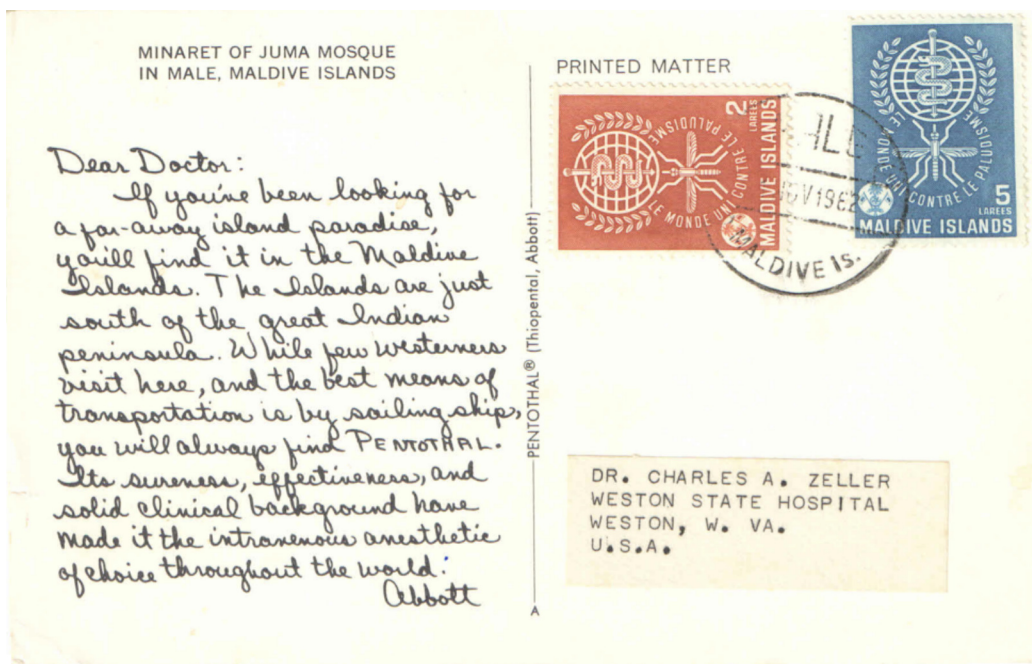 MINARET OF JUMA MOSQUE
IN MALE, MALDIVE ISLANDS
Dear Doctor:
If you've been looking for
a far-away island paradise,
you'll find it in the Maldive
Islands. The Islands are just
south of the great Indian
peninsula. While few westerners
visit here, and the best means of
transportation is by sailing ship,
you will always find PENTOTHAL.
Its sureness, effectiveness, and
solid clinical background have
made it the intravenous anesthetic
of choice throughout the world.
Abbott
PENTOTHAL® (Thiopental, Abbott)
A
PRINTED MATTER
LE MONDE UNI CONTRE LE PALUDISME
2
LAREES
MALDIVE ISLANDS
LE MONDE UNI CONTRE LE PALUDISME
5
LAREES
MALDIVE ISLANDS
NOV 1962
MALDIVE Is.
DR. CHARLES A. ZELLER
WESTON STATE HOSPITAL
WESTON, W. VA.
U.S.A.